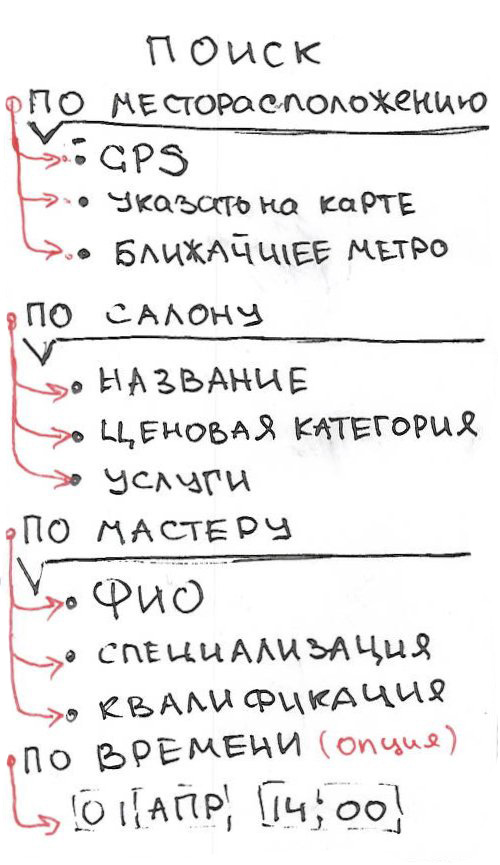 ПОИСК
ПО МЕСТОРАСПОЛОЖЕНИЮ
• GPS
• УКАЗАТЬ НА КАРТЕ
• БЛИЖАЙШЕЕ МЕТРО
ПО САЛОНУ
• НАЗВАНИЕ
• ЦЕНОВАЯ КАТЕГОРИЯ
• УСЛУГИ
ПО МАСТЕРУ
• ФИО
• СПЕЦИАЛИЗАЦИЯ
• КВАЛИФИКАЦИЯ
ПО ВРЕМЕНИ (ОПЦИЯ)
01 АПР, 14:00